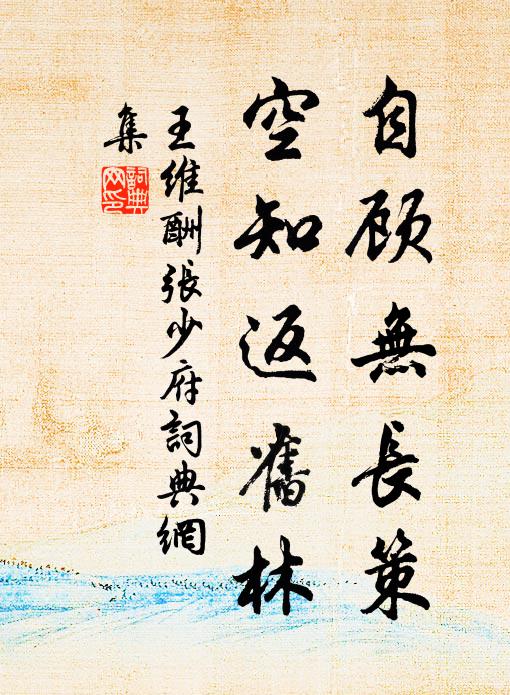 自顾無長策
空知返舊林
王維酬張少府詞典網
集
詞典
网印